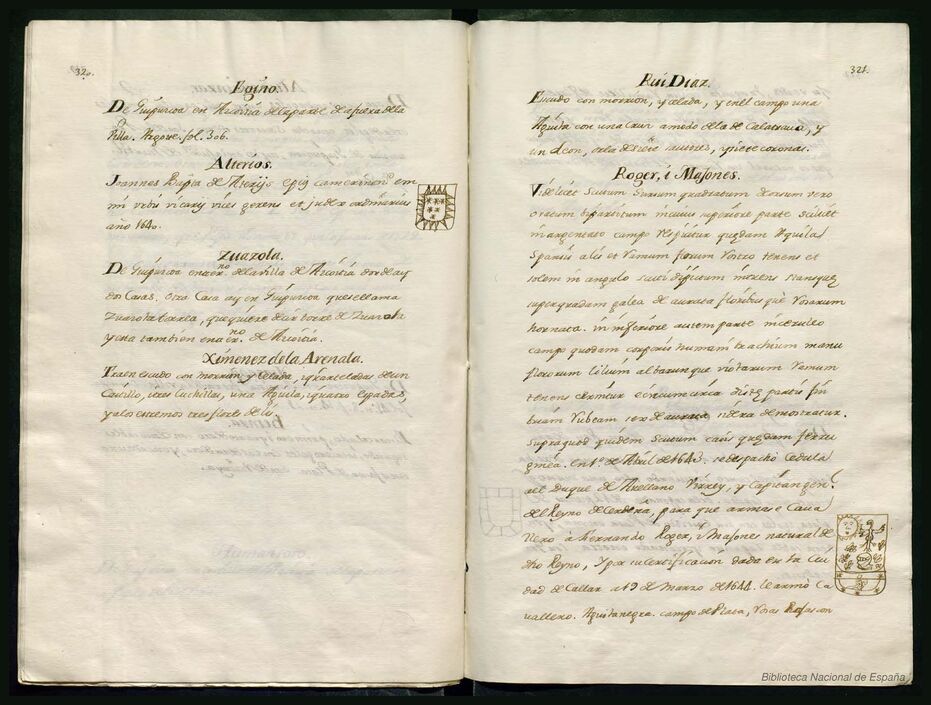 320.
Egino.
De Guipuzcoa en Azcoitia de la parte de afuera de la
Villa. Argote. fol. 306.
Alterios.
Joannes Bapta de Alterijs epis camerinen em
mi Urbis vicarij vices gerens et judex ordinarius
año 1640.
Zuazola.
De Guipuzcoa en terno de la villa de Azcoitia donde ay
dos Casas. otra Casa ay en Guipuzcoa que se llama
Zuazola torrea, que quiere decir torre de Zuazola
y esta tambien en terno. de Azcoitia.
Ximenez de la Arenala.
Traen escudo con morrion, y Celada, quarteladas de un
Castillo, tres Cuchillas, una Aguila, quatro espadas,
y a los estremos tres flores de lis.
321.
Rui Diaz.
Escudo con morrion, y celada, y en el campo una
Aguila con una Cruz a modo de la de Calatrava, y
un Leon, orla de siete castillos, y siete coronas.
Roger, i Masones.
Videlicet Scutum Sursum quadratum deorsum vero
oratum bipartitum in cuius superiore parte scilicet
in argentato campo Respicitur quedam Aquila
Sparsis alis et Ramum florum Rostro tenens et
solem in angulo scuti
supergradam galea de aurata floribusque Rosarum
hornata. in inferiore autem parte in ceruleo
campo quodam corporis humani brachium manu
flororum lilium albarunque violarum Ramum
tenens cernitur e circumcirca
Rubeam sex de aurata sidera demostratur.
supra quod quidem scutum casis quedam ferru
ginea. en 1o. de Abril de 1643. se despachó Cedula
al Duque de Avellano Virrey, y Capitan gen.l
del Reyno de Cerdeña, para que armase Cava
llero à Hernando Roger, i Masones natural de
dho Reyno, y por su Certificacion dada en la Ciu
dad de Callar a 19 de Marzo de 1644. le armó Ca
vallero. Aguila negra. campo de Plata, Rosas Rojas con
Biblioteca Nacional de España